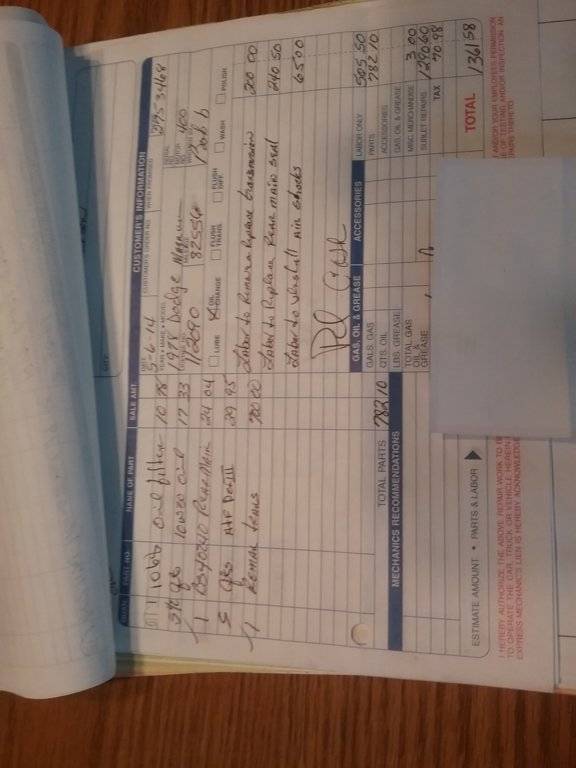 CUSTOMER'S INFORMATION
QUAN. PART NO. NAME OF PART SALE AMT.
DATE 5-6-14
CUSTOMER'S ORDER NO.
WHEN PROMISED
YEAR • MAKE • MODEL
1998 Dodge
112090
400
1 1086 Oil filter 10 78
5½ qts 10w30 oil 17 33
1 BS40240 Rear Main 24 04
5 Qts ATF 29 95
1 Reman trans 700 00
LUBE
OIL CHANGE
FLUSH TRANS
FLUSH DIFF.
WASH
POLISH
Labor to Remove & Replace transmission 200 00
Labor to Replace Rear main seal 240 50
Labor to install Air shocks 65 00
Pd Cash
TOTAL PARTS 782 10
MECHANICS RECOMMENDATIONS
GAS, OIL & GREASE
GALS. GAS
QTS. OIL
LBS. GREASE
TOTAL GAS OIL & GREASE
ACCESSORIES
LABOR ONLY 505.50
PARTS 782 10
ACCESSORIES
GAS, OIL & GREASE
MISC. MERCHANDISE 3.00
SUBLET REPAIRS 1290 60
TAX 70.98
TOTAL 1361 58
ESTIMATE AMOUNT • PARTS & LABOR
I HEREBY AUTHORIZE THE ABOVE REPAIR WORK TO BE
TO OPERATE THE CAR, TRUCK OR VEHICLE HEREIN
EXPRESS MECHANICS LIEN IS HEREBY ACKNOWLEDGE
AND/OR YOUR EMPLOYEES PERMISSION
OF TESTING AND/OR INSPECTION AN